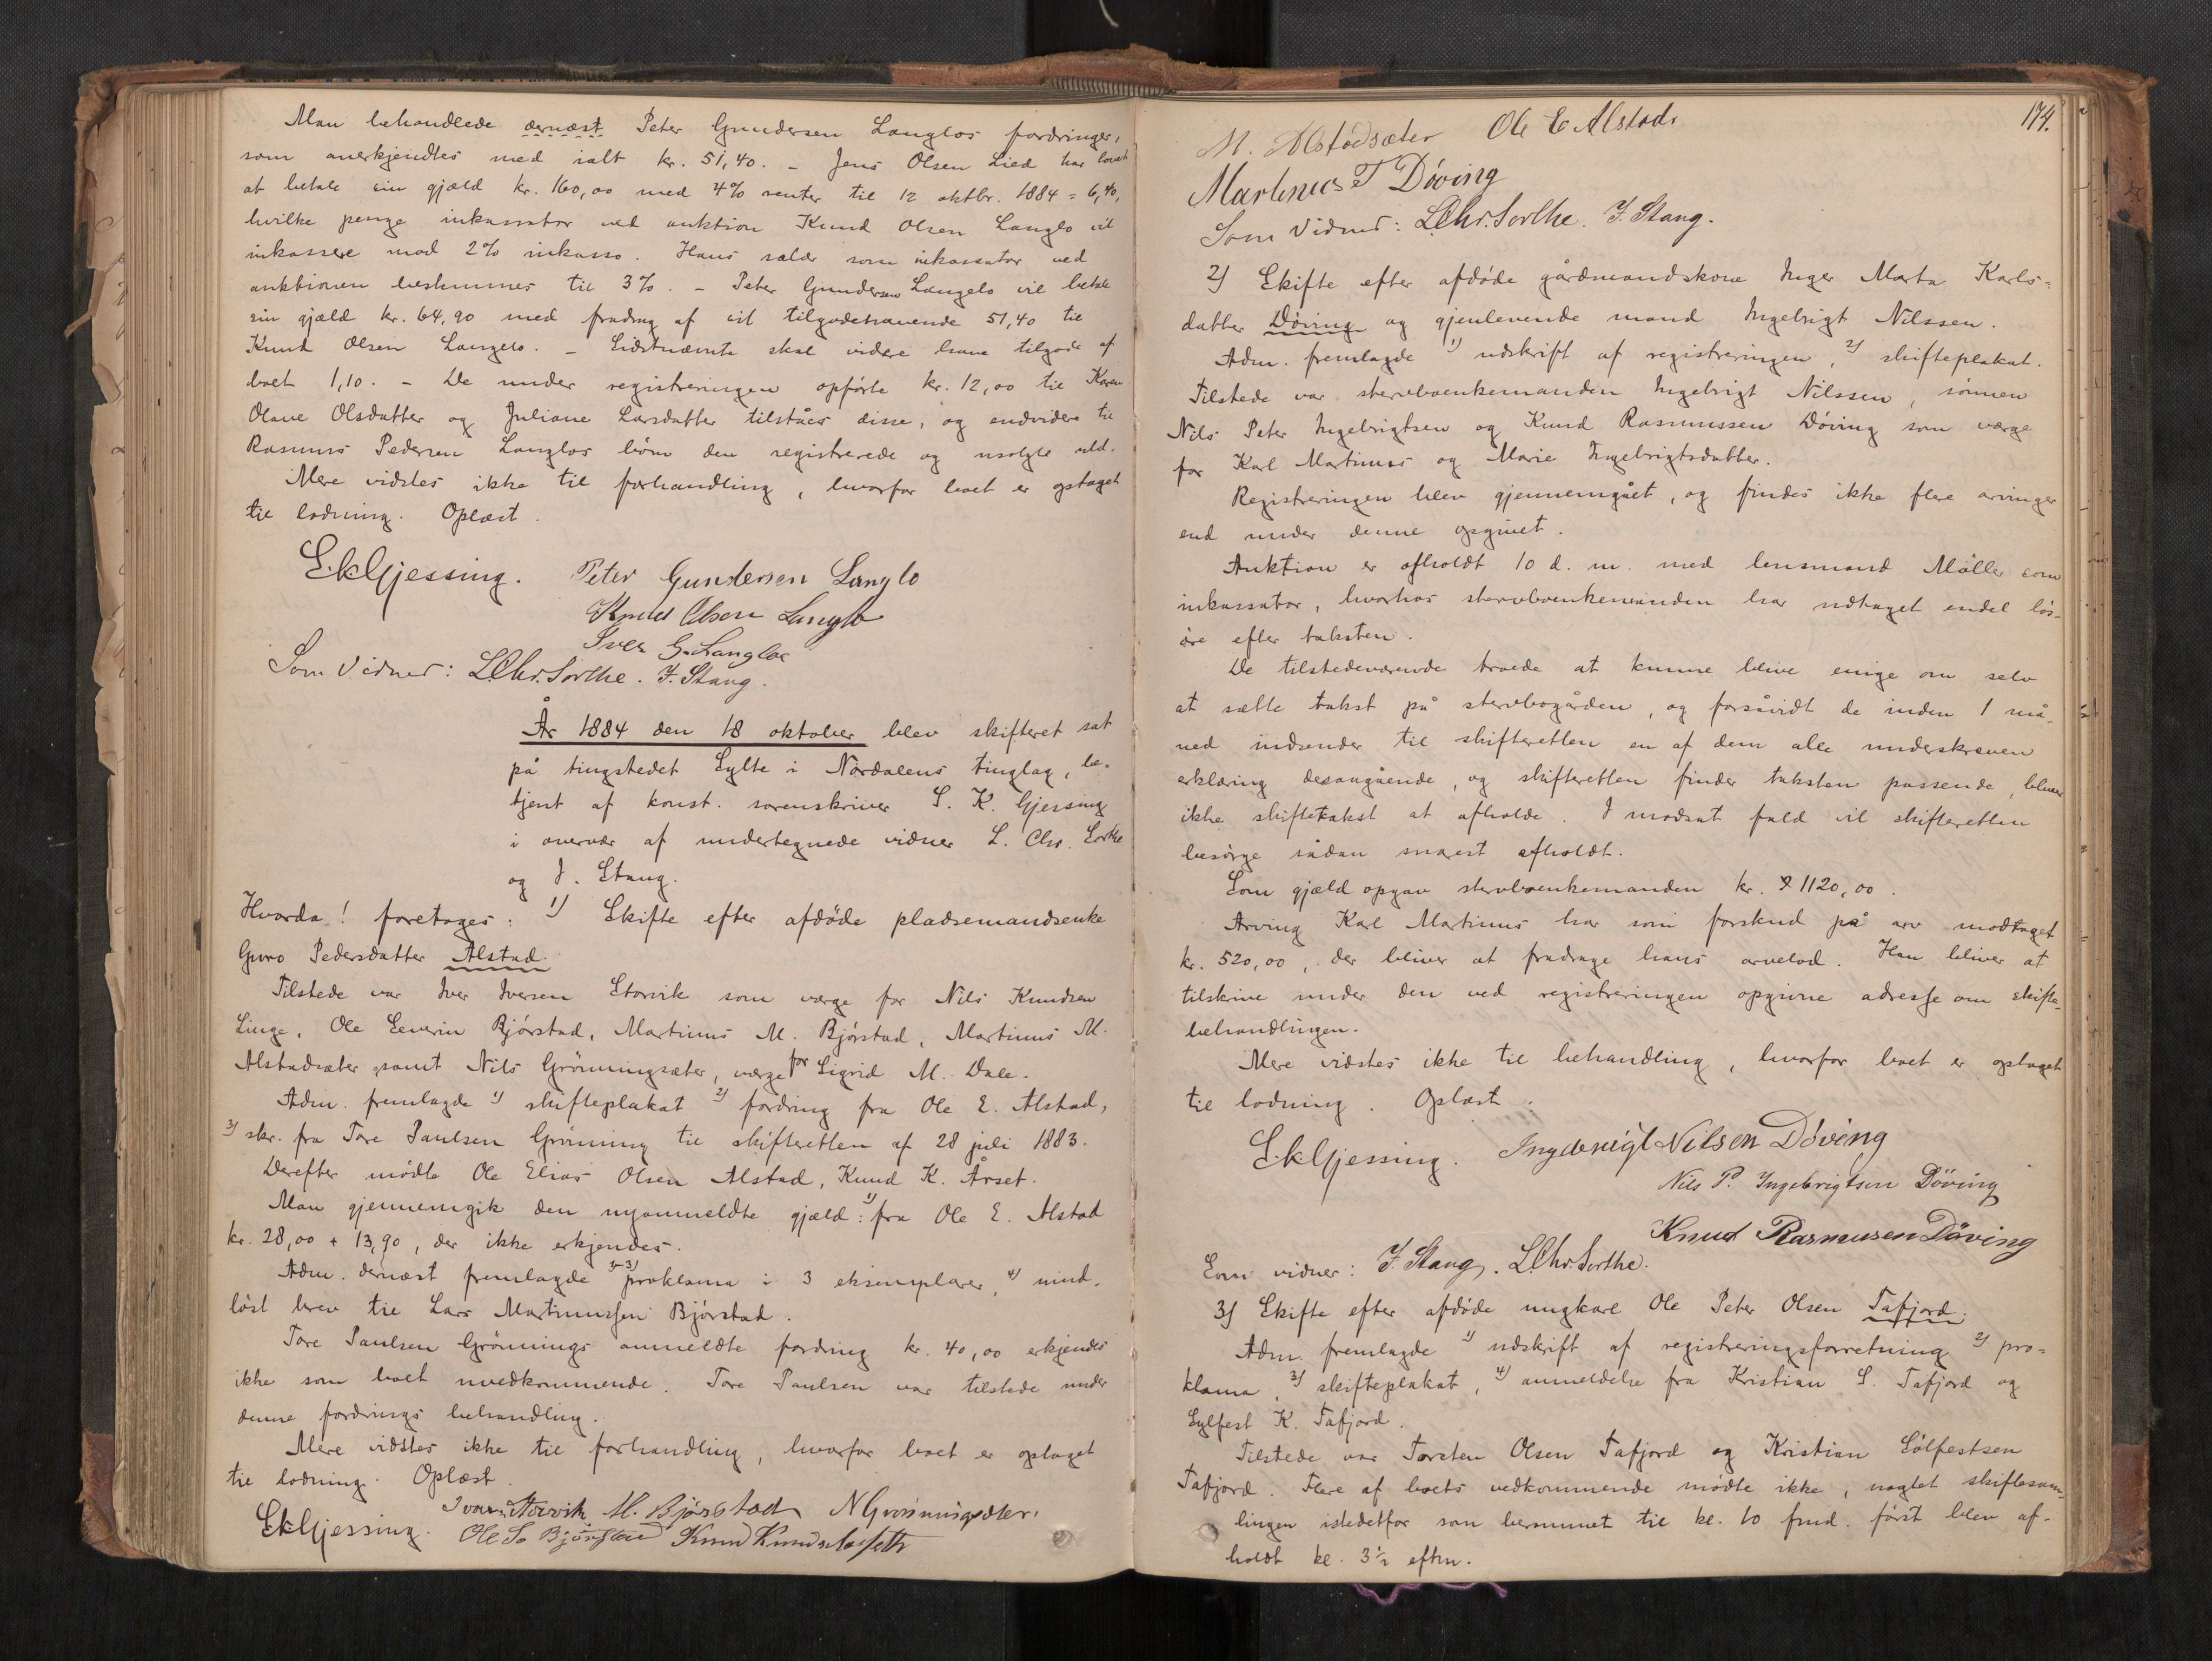 Man behandlede dernæst Peter Gundersen Langlos fordringer,
som anerkjendtes med ialt kr. 51,40. – Jens Olsen Lied har lovet
at betale sin gjæld kr. 160,00 med 4% renter til 12 oktbr. 1884 = 6,40,
hvilke penge inkassator ved auktion Knud Olsen Langlo vil
inkassere mod 2% inkasso. Hans salær som inkassator ved
auktionen bestemmes til 3%. – Peter Gundersen Langelo vil betale
sin gjæld kr. 64,90 med fradrag af sit tilgodehavende 51,40 til
Knud Olsen Langelo. – Sidstnævnte skal videre have tilgode af
boet 1,10. – De under registreringen opførte kr. 12,00 til Karen
Oline Olsdatter og Juliane Larsdatter tilståes disse, og endvidere til
Rasmus Pedersen Langlos børn den registrerede og usolgte uld.
Mere vidstes ikke til forhandling, hvorfor boet er optaget
til lodning. Oplæst.
S.K. Gjessing. Peter Gundersen Langlo
Knud Olsen Langlo
Iver G. Langloe
Som Vidner: L. Chr. Sorthe. J. Stang.
År 1884 den 18 oktober blev skifteret sat
på tingstedet Sylte i Nordalens tinglag, be-
tjent af konst. sorenskriver S. K. Gjessing
i overvær af undertegnede vidner L. Chr. Sorthe
og J. Stang.
Hvorda! foretoges: 1) Skifte efter afdøde pladsemandsenke
Guro Pedersdatter Alstad.
Tilstede var Iver Iversen Storvik som værge for Nils Knudsen
Linge, Ole Severin Bjørstad, Martinus M. Bjørstad, Martinus M.
Alstadsæter samt Nils Grönningsæter, værge for Sigrid M. Dale.
Adm. fremlagde 1) skifteplakat 2) fordring fra Ole E. Alstad,
3) skr. fra Tore Paulsen Grönning til skifteretten af 28 juli 1883.
Derefter mødte Ole Elias Olsen Alstad, Knud K. Årset.
Man gjennemgik den nyanmeldte gjæld: 1) fra Ole E. Alstad
kr. 28,00 + 13,90, der ikke erkjendes.
Adm. dernæst fremlagde 1-3) proklama i 3 eksemplarer, 4) uind-
løst brev til Lars Martinussen Bjørstad.
Tore Paulsen Grönnings anmeldte fordring kr. 40,00 erkjendes
ikke som boet uvedkommende. Tore Paulsen var tilstede under
denne fordrings behandling.
Mere vidstes ikke til forhandling, hvorfor boet er optaget
til lodning. Oplæst.
S.K. Gjessing. Storvik M. Bjørstad N Grønningsæter.
Ole S. Bjørstad Knud Knudsen
174.
M. Alstadsæter Ole E Alstad.
Martinus T Döving
Som Vidner: L. Chr. Sorthe. J. Stang.
2) Skifte efter afdøde gårdmandskone Inger Marta Karls-
datter Døving og gjenlevende mand Ingebrigt Nilssen.
Adm. fremlagde 1) udskrift af registreringen, 2) skifteplakat.
Tilstede var stervboenkemanden Ingebrigt Nilssen, sønnen
Nils Peter Ingebrigtsen og Knud Rasmussen Døving som værge
for Karl Martinus og Marie Ingebrigtsdatter.
Registreringen blev gjennemgået, og findes ikke flere arvinger
end under denne opgivet.
Auktion er afholdt 10 d. m. med lensmand Møller som
inkassator, hvorhos stervboenkemanden har udtaget endel løs-
øre efter taksten.
De tilstedeværende troede at kunne blive enige om selv
at sætte takst på stervbogården, og forsåvidt de inden 1 må-
ned indsender til skifteretten en af dem alle underskreven
erklæring desangående, og skifteretten finder taksten passende, bliver
ikke skiftetakst at afholde. I modsat fald vil skifteretten
besørge sådan snarest afholdt.
Som gjæld opgav stervboenkemanden kr. 1120,00.
Arving Karl Martinus har som forskud på arv modtaget
kr. 520,00, der bliver at fradrage hans arvelod. Han bliver at
tilskrive under den ved registreringen opgivne adresse om skifte-
behandlingen.
Mere vidstes ikke til behandling, hvorfor boet er optaget
til lodning. Oplæst.
S.K. Gjessing. Ingebrigt Nilsen Döving
Nils P. Ingebrigtsen Döving
Knud Rasmusen Döving
Som vidner: J. Stang. L. Chr. Sorthe.
3) Skifte efter afdøde ungkarl Ole Peter Olsen Tafjord.
Adm. fremlagde 1) udskrift af registreringsforretning 2) pro-
klama, 3) skifteplakat, 4) anmeldelse fra Kristian S. Tafjord og
Sylfest K. Tafjord.
Tilstede var Torsten Olsen Tafjord og Kristian Sølfestsen
Tafjord. Flere af boets vedkommende mødte ikke, uagtet skiftesam-
lingen istedetfor som berammet til kl. 10 fmd. først blev af-
holdt kl. 3½ eftm.